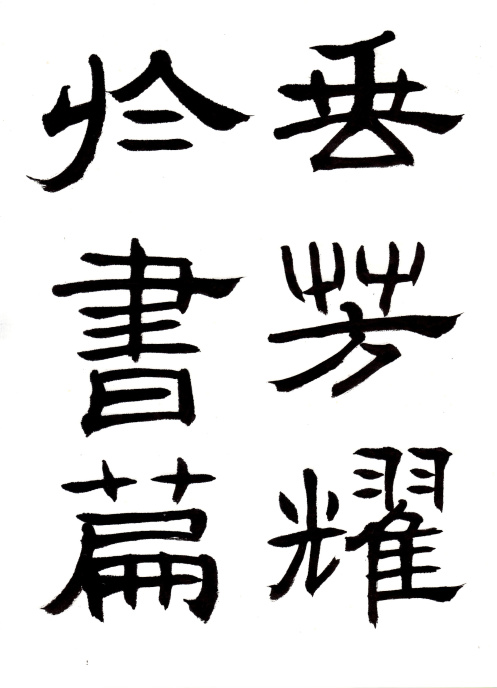 垂芳耀
於書篇